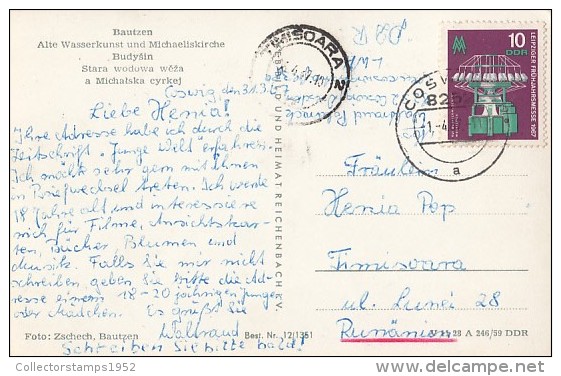 Bautzen
Alte Wasserkunst und Michaeliskirche
Budyšin
Stara wodowa wěža
a Michałska cyrkej
Coswig, den 31.3.67
Liebe Henia!
Ihre Adresse habe ich durch die
Zeitschrift "Junge Welt" erfahren.
Ich möchte sehr gern mit Ihnen
in Briefwechsel treten. Ich werde
18 Jahre alt und interessiere
mich für Filme, Ansichtskar-
ten, Bücher, Blumen und
Musik. Falls Sie mir nicht
schreiben, geben Sie bitte die Ad-
resse einem 18-20 jährigen Jungen
oder Mädchen. Es grüßt Sie
Waltraud
Schreiben Sie bitte bald!
Foto: Zschech, Bautzen
Best. Nr. 12/1351
UND HEIMAT REICHENBACH i. V.
TIMISOARA 2
DDR
COSWIG
a
10
DDR
LEIPZIGER FRÜHJAHRSMESSE 1967
Fräulein
Henia Pop
Timisoara
ul. Lunei 28
Rumänien
28 A 246/59 DDR
Collectorstamps1952
delcampe.net